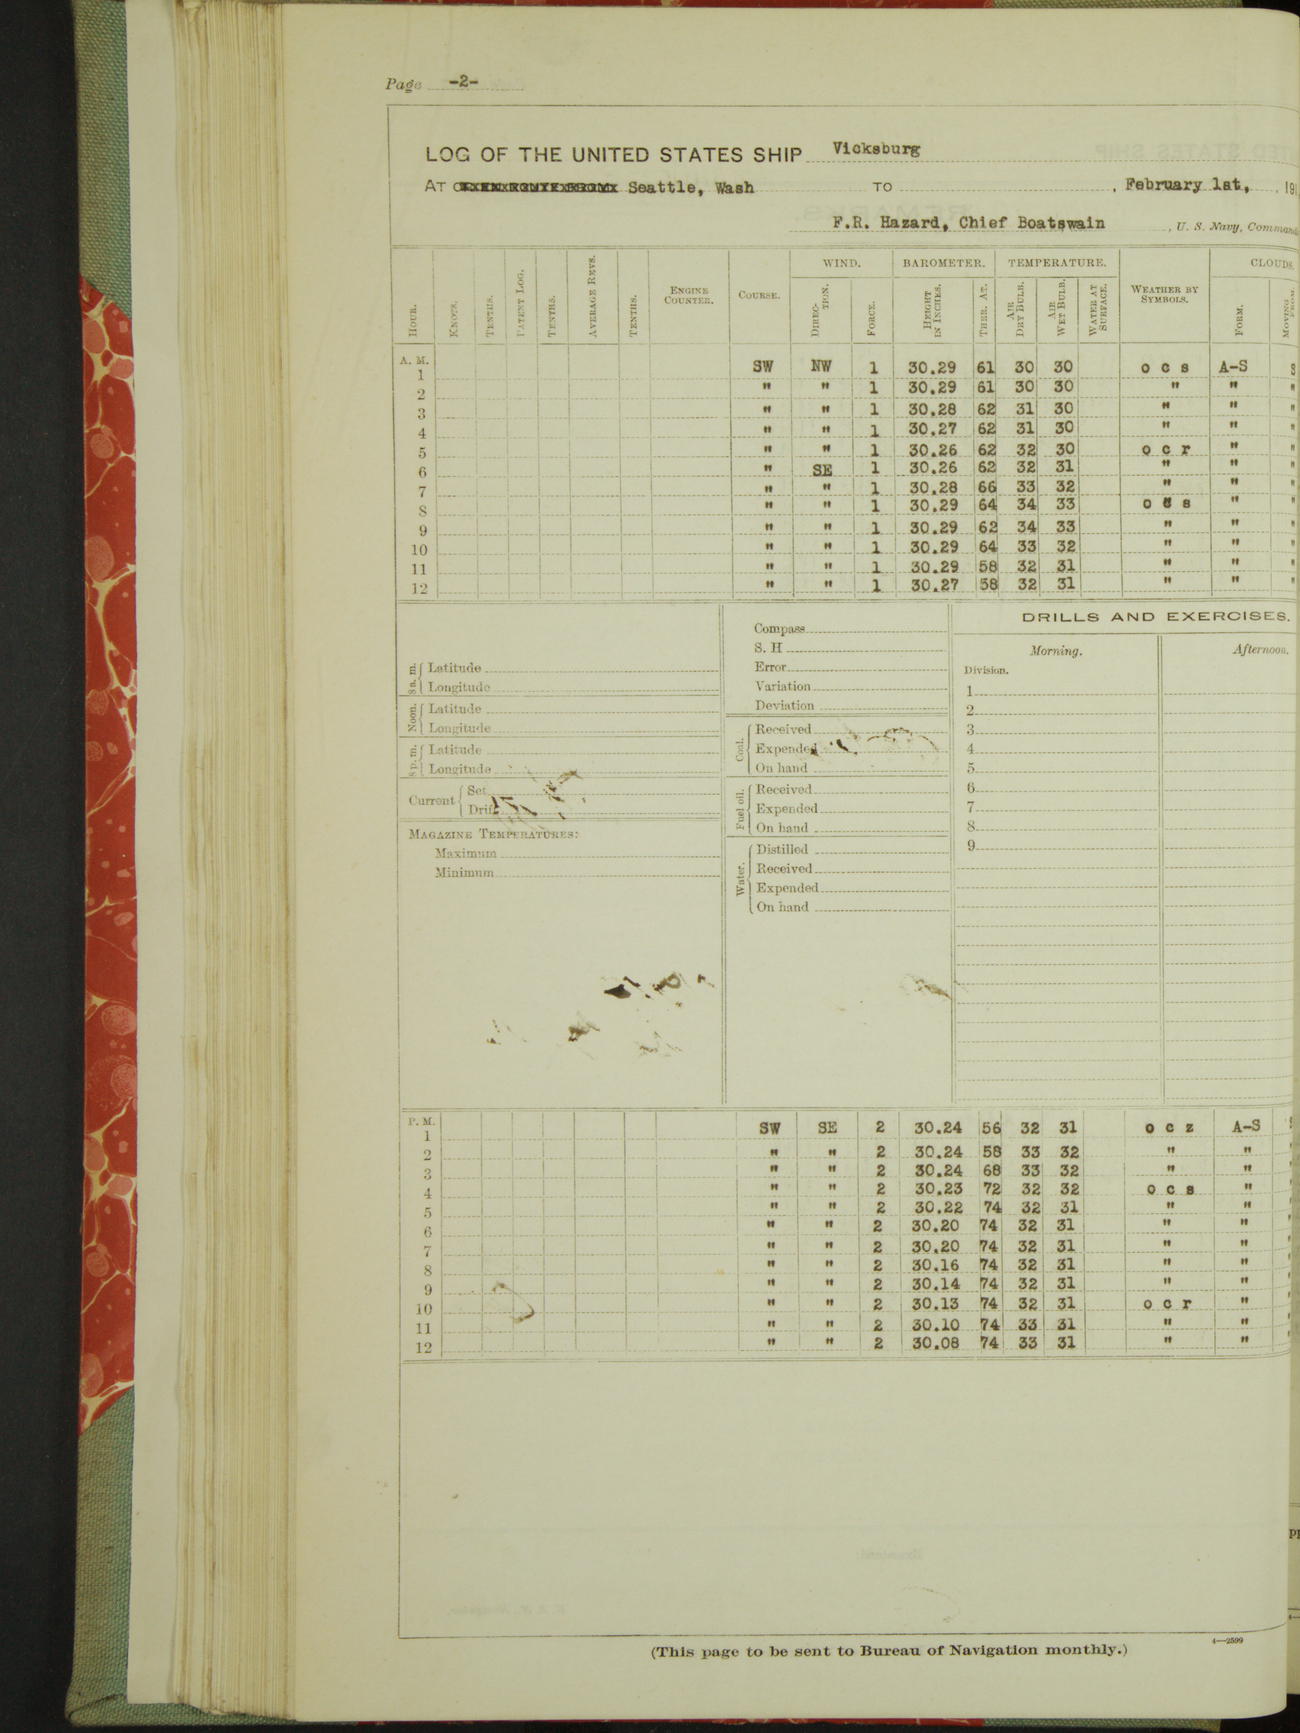 Page -2-
LOG OF THE UNITED STATES SHIP Vicksburg
AT Seattle, Wash TO , February 1st, , 191
F.R. Hazard, Chief Boatswain , U. S. Navy, Command
WIND. BAROMETER. TEMPERATURE. CLOUDS.
HOUR. KNOTS. TENTHS. PATENT LOG. TENTHS. AVERAGE REVS. TENTHS. ENGINE COUNTER. COURSE. DIRECTION. FORCE. HEIGHT IN INCHES. THER. AT. AIR DRY BULB. AIR WET BULB. WATER AT SURFACE. WEATHER BY SYMBOLS. FORM. MOVING FROM.
A. M.
1 SW NW 1 30.29 61 30 30 o c s A-S S
2 " " 1 30.29 61 30 30 " " "
3 " " 1 30.28 62 31 30 " " "
4 " " 1 30.27 62 31 30 " " "
5 " " 1 30.26 62 32 30 o c r " "
6 " SE 1 30.26 62 32 31 " " "
7 " " 1 30.28 66 33 32 " " "
8 " " 1 30.29 64 34 33 o c s " "
9 " " 1 30.29 62 34 33 " " "
10 " " 1 30.29 64 33 32 " " "
11 " " 1 30.29 58 32 31 " " "
12 " " 1 30.27 58 32 31 " " "
8 a. m. Latitude
Longitude
Noon. Latitude
Longitude
8 p. m. Latitude
Longitude
Current Set
Drift
MAGAZINE TEMPERATURES:
Maximum
Minimum
Compass
S. H
Error
Variation
Deviation
Coal. Received
Expended
On hand
Fuel oil. Received
Expended
On hand
Water. Distilled
Received
Expended
On hand
DRILLS AND EXERCISES.
Morning. Afternoon.
Division.
1
2
3
4
5
6
7
8
9
P. M.
1 SW SE 2 30.24 56 32 31 o c z A-S
2 " " 2 30.24 58 33 32 " " "
3 " " 2 30.24 68 33 32 " " "
4 " " 2 30.23 72 32 32 o c s " "
5 " " 2 30.22 74 32 31 " " "
6 " " 2 30.20 74 32 31 " " "
7 " " 2 30.20 74 32 31 " " "
8 " " 2 30.16 74 32 31 " " "
9 " " 2 30.14 74 32 31 " " "
10 " " 2 30.13 74 32 31 o c r " "
11 " " 2 30.10 74 33 31 " " "
12 " " 2 30.08 74 33 31 " " "
(This page to be sent to Bureau of Navigation monthly.)
4—2599